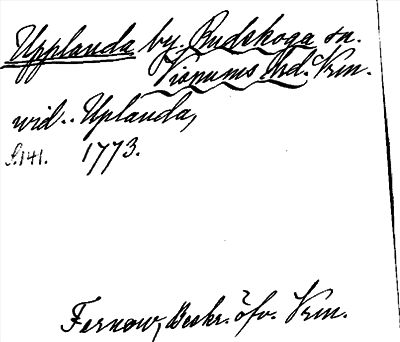 Upplanda by. Rudskoga sn.
Visnums hd. Vrm.
wid.. Uplanda,
S.141. 1773.
Fernow, Beskr. öfv. Vrm.